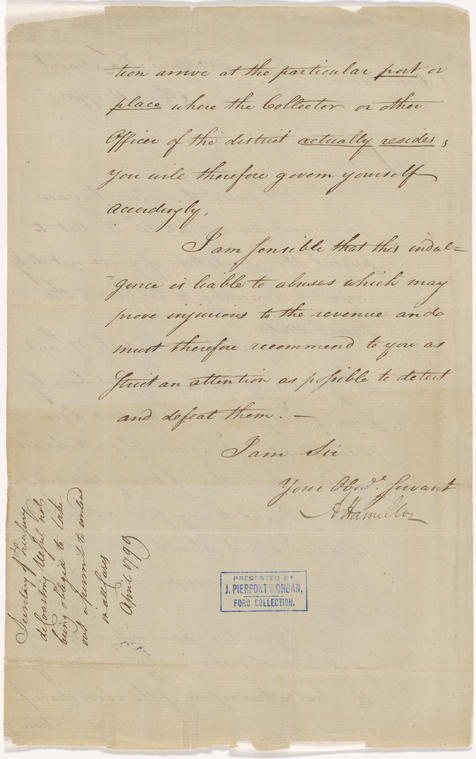 tion arrive at the particular port or
place where the Collector or other
Officer of the district actually resides;
you will therefore govern yourself
accordingly.
I am sensible that this indul=
"gence is liable to abuses which may
prove injurious to the revenue and
must therefore recommend to you as
strict an attention as possible to detect
and defeat them. —
I am Sir
Your Obedt. Servant
A Hamilton
PRESENTED BY
J. PIERPONT MORGAN,
FORD COLLECTION.
of Treasury
not
being obliged to take
out a permit to unlade
April